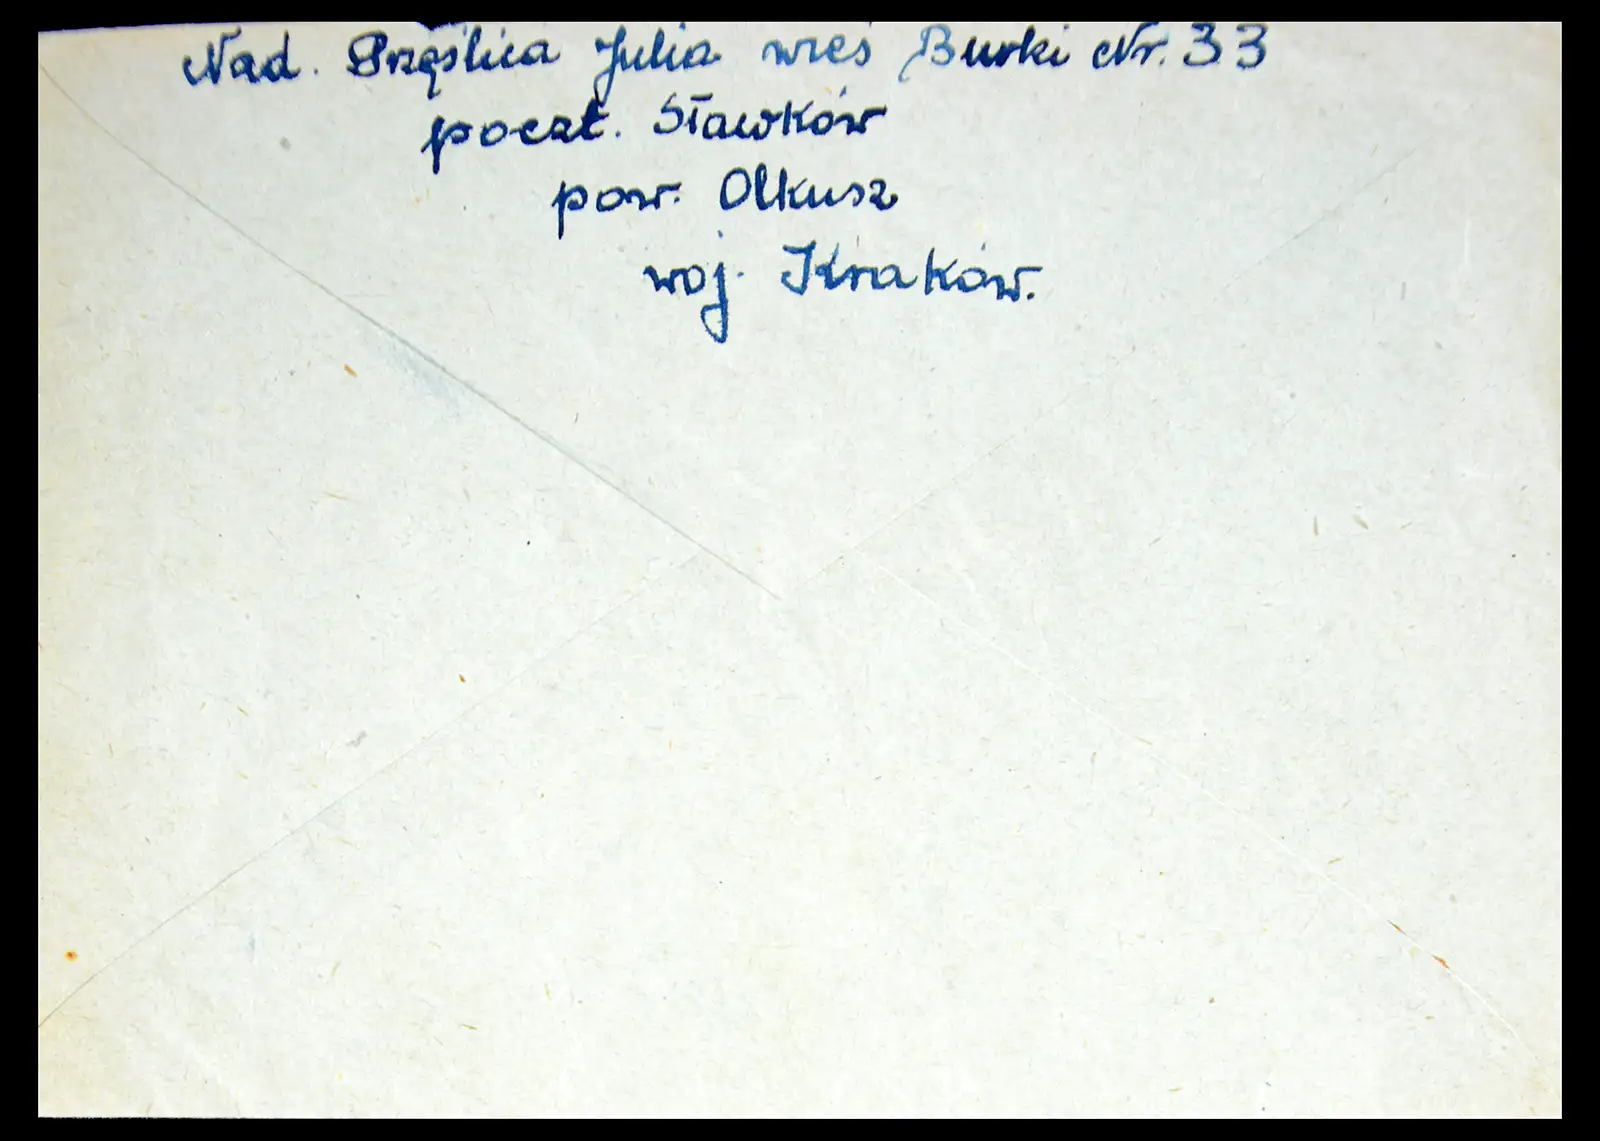 Nad. Przęślica Julia wieś Burki Nr. 33
poczt. Sławków
pow. Olkusz
woj. Kraków.